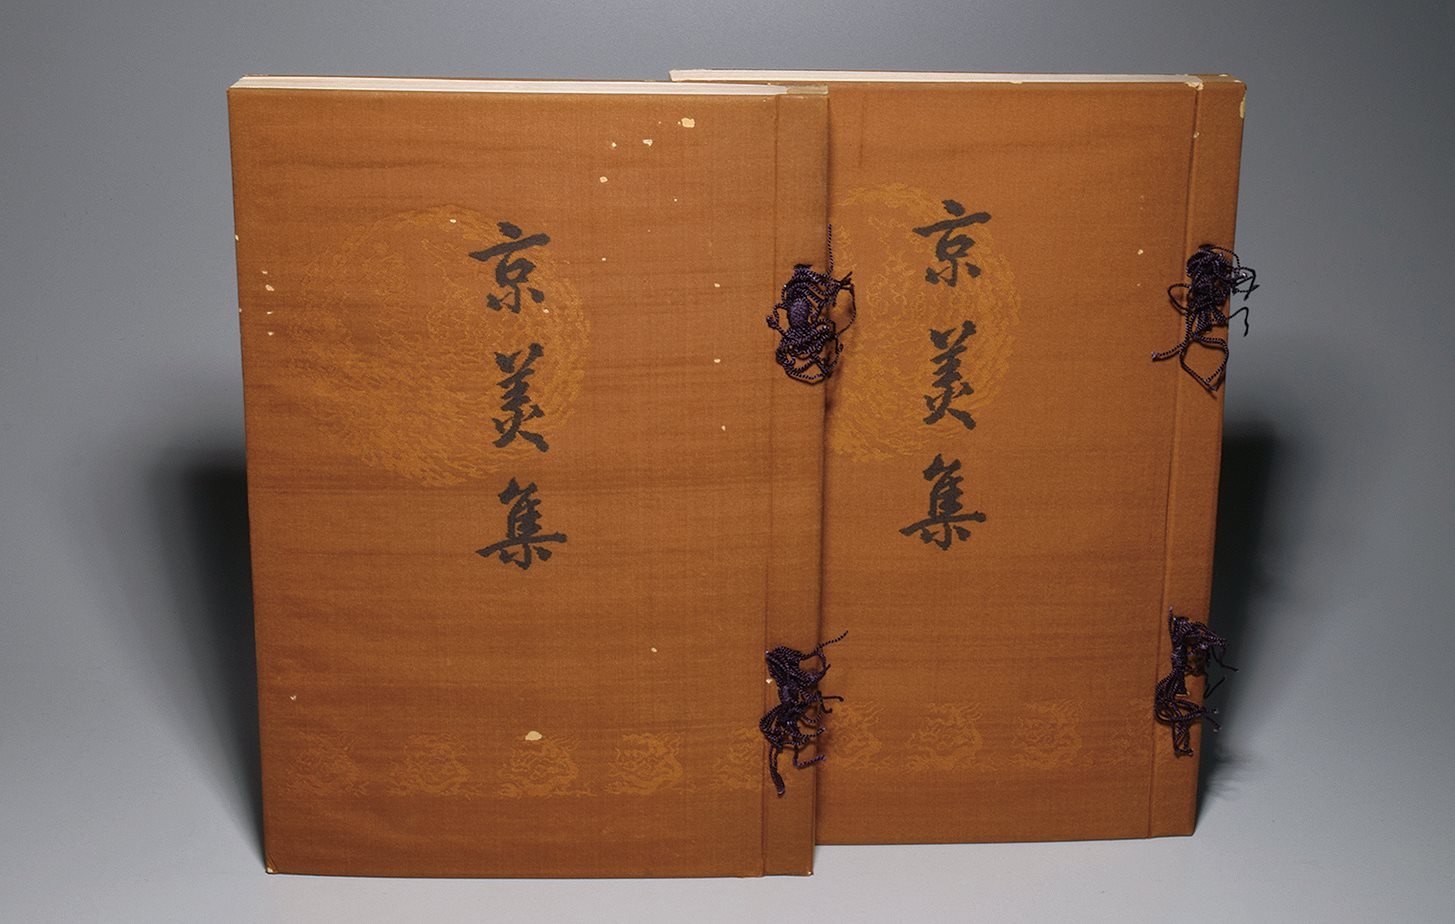 京美集
京美集